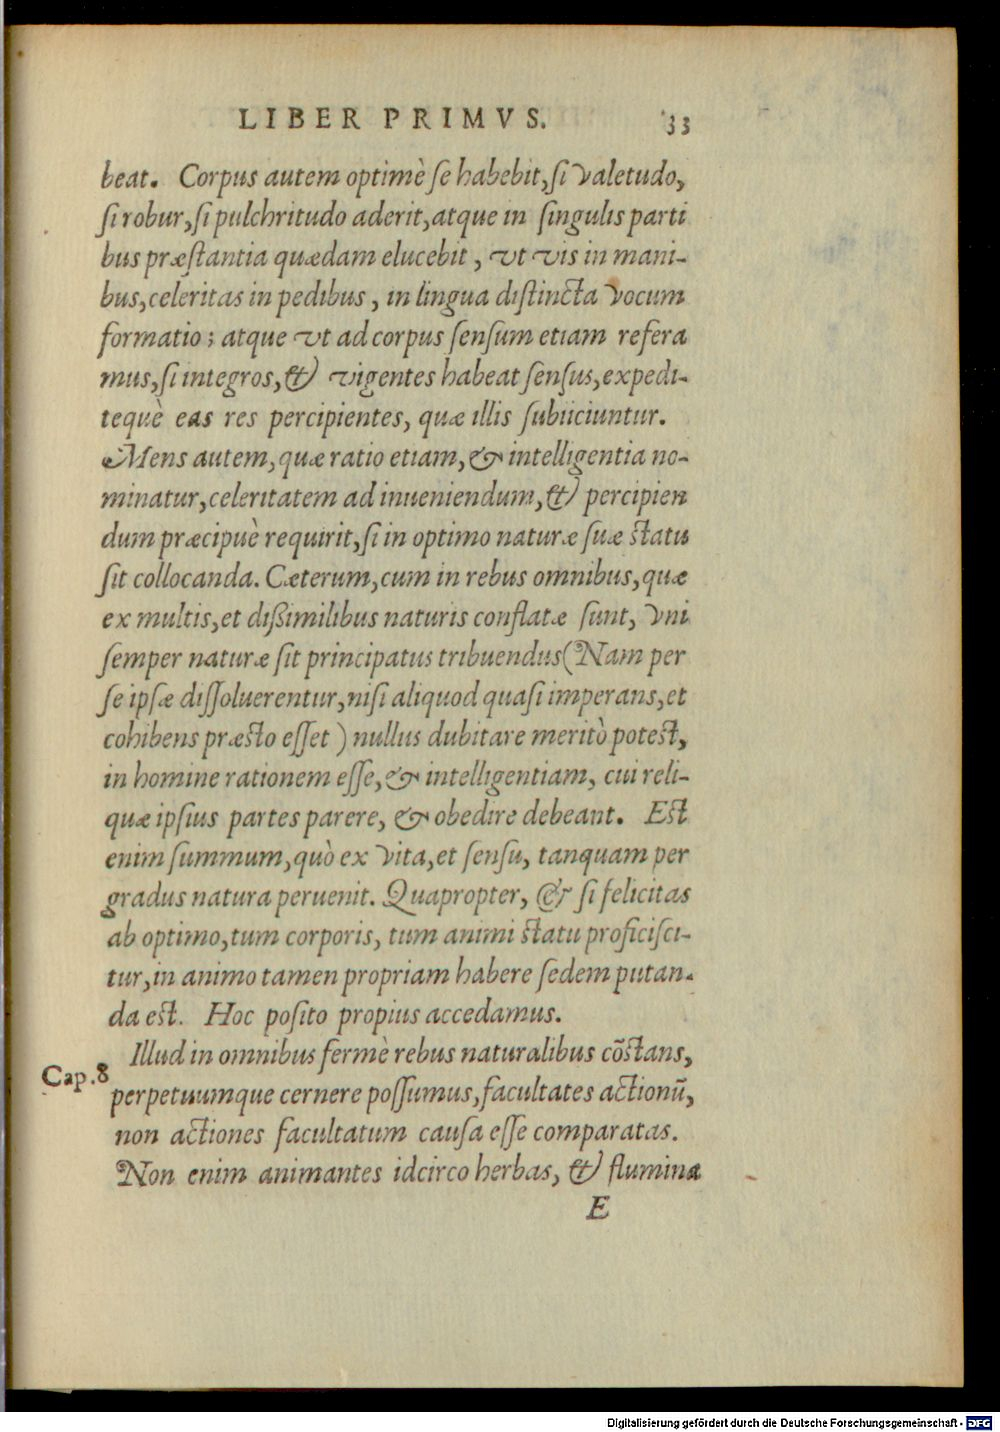 LIBER PRIMVS. 33
beat. Corpus autem optimè ſe habebit, ſi valetudo,
ſi robur, ſi pulchritudo aderit, atque in ſingulis parti
bus præſtantia quædam elucebit, vt vis in mani-
bus, celeritas in pedibus, in lingua diſtincta vocum
formatio; atque vt ad corpus ſenſum etiam refera
mus, ſi integros, & vigentes habeat ſenſus, expedi-
tequè eas res percipientes, quæ illis ſubiiciuntur.
Mens autem, quæ ratio etiam, & intelligentia no-
minatur, celeritatem ad inueniendum, & percipien
dum præcipuè requirit, ſi in optimo naturæ ſuæ ſtatu
ſit collocanda. Cæterum, cum in rebus omnibus, quæ
ex multis, et dißimilibus naturis conflatæ ſunt, vni
ſemper naturæ ſit principatus tribuendus (Nam per
ſe ipſæ diſſoluerentur, niſi aliquod quaſi imperans, et
cohibens præſto eſſet) nullus dubitare meritò poteſt,
in homine rationem eſſe, & intelligentiam, cui reli-
quæ ipſius partes parere, & obedire debeant. Eſt
enim ſummum, quò ex vita, et ſenſu, tanquam per
gradus natura peruenit. Quapropter, & ſi felicitas
ab optimo, tum corporis, tum animi ſtatu proficiſci-
tur, in animo tamen propriam habere ſedem putan-
da eſt. Hoc poſito propius accedamus.
Illud in omnibus fermè rebus naturalibus cōſtans,
Cap. 8
perpetuumque cernere poſſumus, facultates actionū,
non actiones facultatum cauſa eſſe comparatas.
Non enim animantes idcirco herbas, & flumina
E
Digitalisierung gefördert durch die Deutsche Forschungsgemeinschaft - DFG